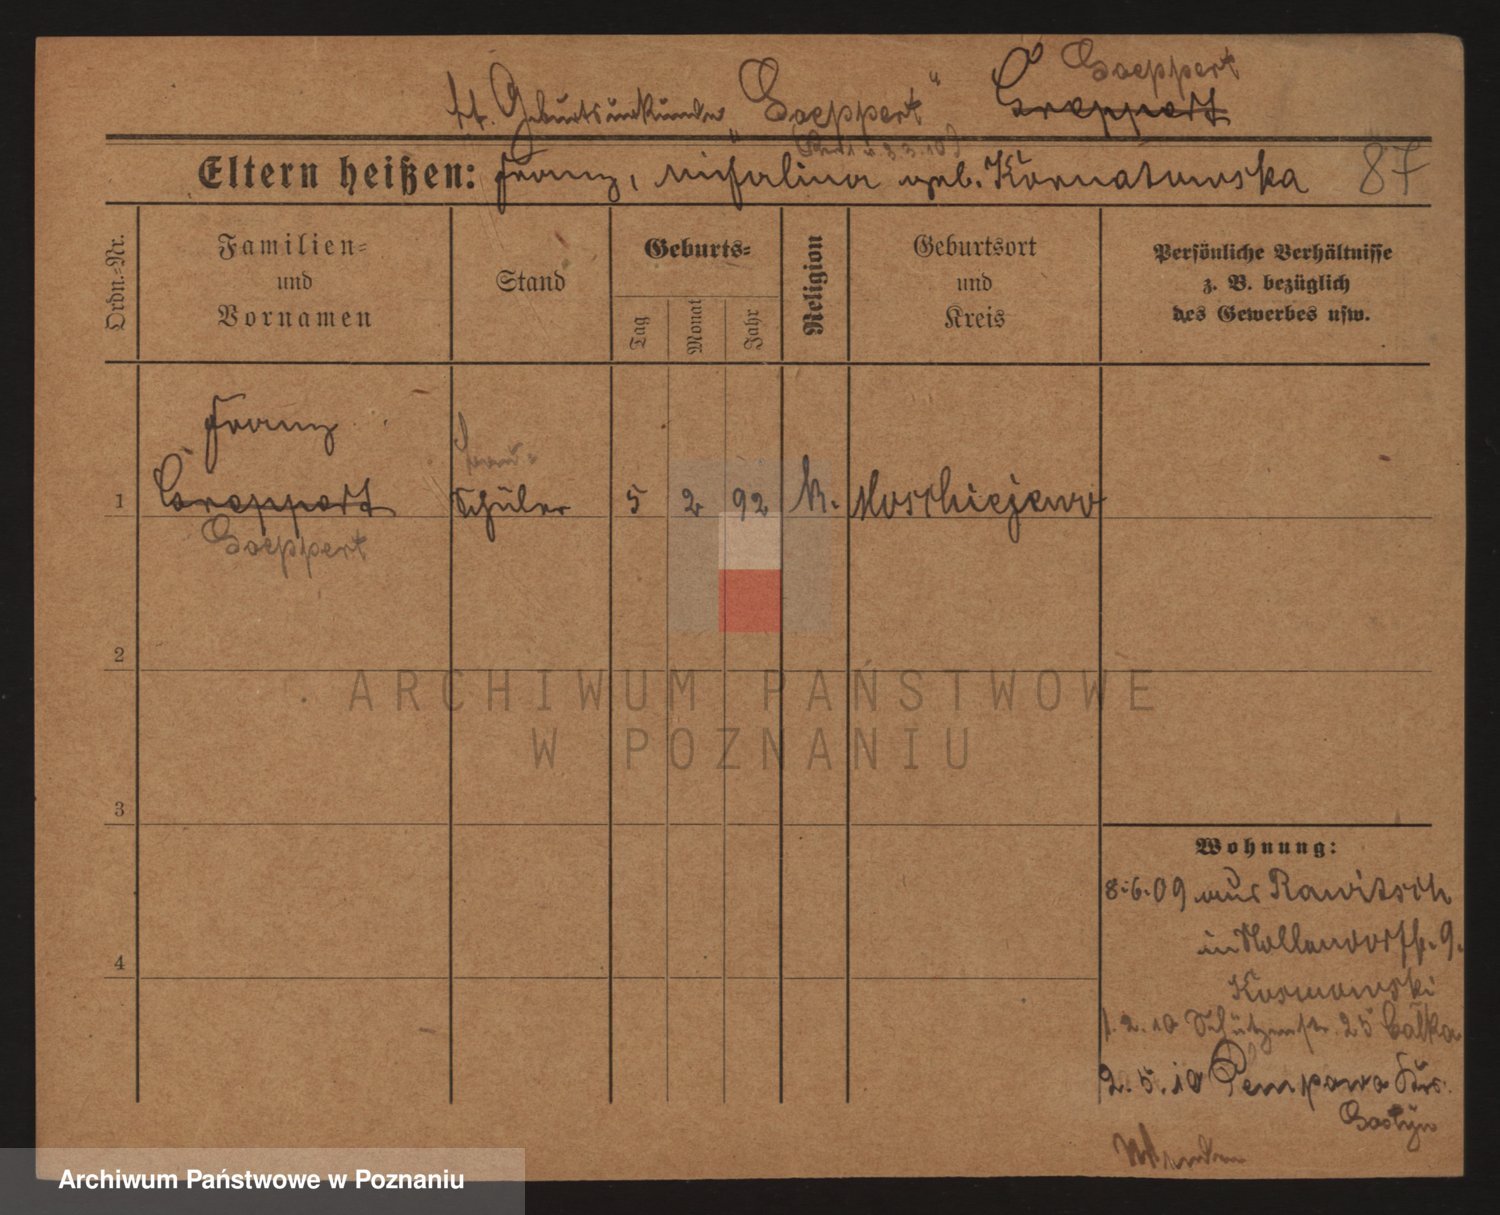 lt. Geburtsurkunde „Goeppert“ Goeppert
Greppert
Eltern heißen: Franz, Michalina geb. Kornatowska 87
Ordn.-Nr.
Familien- und Vornamen
Stand
Geburts-
Tag
Monat
Jahr
Religion
Geburtsort und Kreis
Persönliche Verhältnisse
z. B. bezüglich
des Gewerbes usw.
Franz
1 Greppert Schüler 5 2 92 K. Moschiejewo
Goeppert
2
3
4
Wohnung:
8.6.09 aus Rawitsch
in Nollendorfstr. 9.
Kosmowski
1.2.10 Schützenstr. 25 Calka
2.5.10 Pempowo Krs.
Gostyn
ARCHIWUM PAŃSTWOWE
W POZNANIU
Archiwum Państwowe w Poznaniu